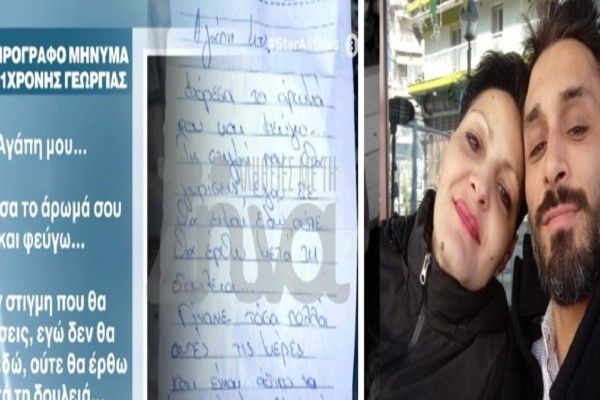 ΙΡΟΓΡΑΦΟ ΜΗΝΥΜΑ
1ΧΡΟΝΗΣ ΓΕΩΡΓΙΑΣ
Αγάπη μου...
σα το άρωμά σου
και φεύγω...
ν στιγμη που θα
σεις, εγώ δεν θα
εδώ, ούτε θα έρθω
τά τη δουλειά...
#StarAlithies
3
Αγάπη μου,
Φόρεσα το άρωμα
σου και φεύγω...
τη στιγμή που θα
γυρίσεις εγώ δε
θα είμαι εδώ ούτε
θα έρθω μετά τη
δουλειά...
Γίνανε τόσα πολλά
αυτές τις μέρες
ΜΗ
ΜΕ ΤΗ